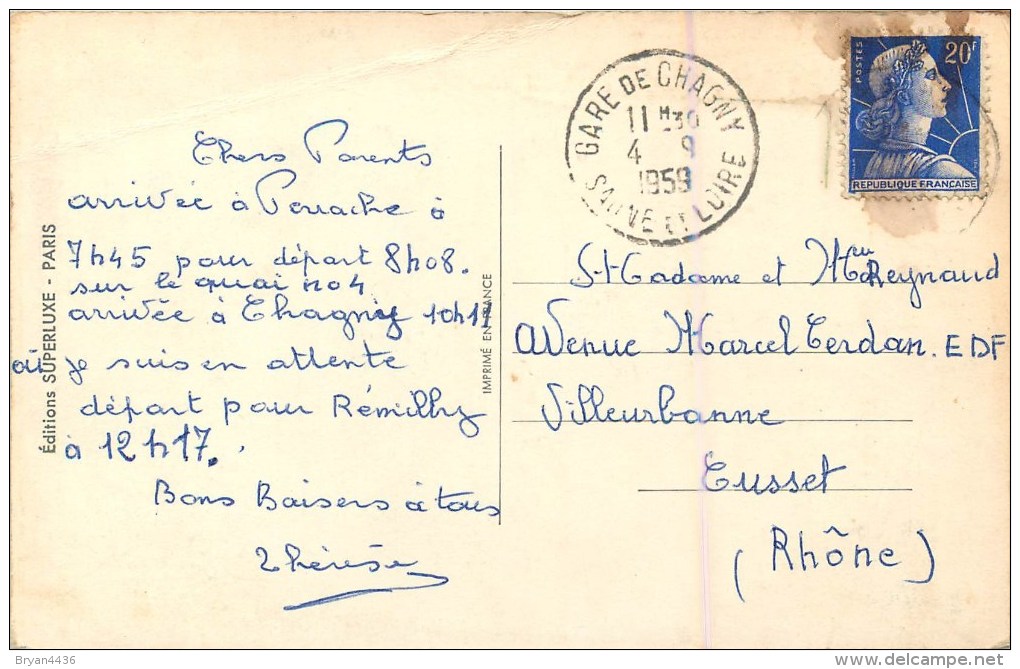 Chers Parents
arrivée à Perrache à
7h45 pour départ 8h08.
sur le quai no 4
arrivée à Chagny 10h11
où je suis en attente
départ pour Rémilly
à 12h17.
Bons Baisers à tous
Thérèse
Éditions SUPERLUXE - PARIS
IMPRIMÉ EN FRANCE
GARE DE CHAGNY
11 H30
4 9
1959
SAONE ET LOIRE
POSTES
20F
REPUBLIQUE FRANÇAISE
et Reynaud
Avenue Marcel Cerdan. EDF
Villeurbanne
Cusset
(Rhône)
Bryan4436
delcampe.net